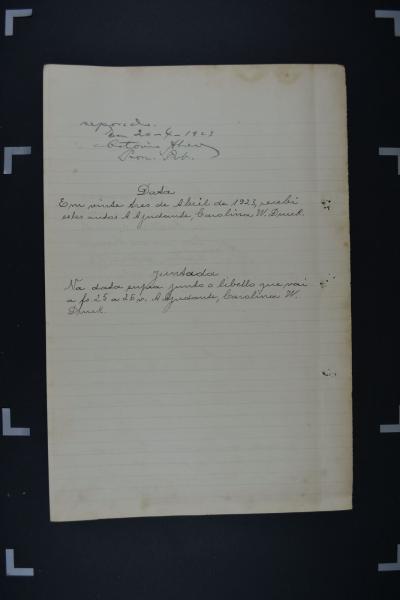 em 20-4-1923
Antonio
Prom. Pub.
Data
Em vinte tres de Abril de 1923, recebi
estes autos A Ajudante, Carolina W. Druck.
Juntada
Na data supra junto o libello que vai
a fs 25 a 26v. A Ajudante, Carolina W.
Druck.